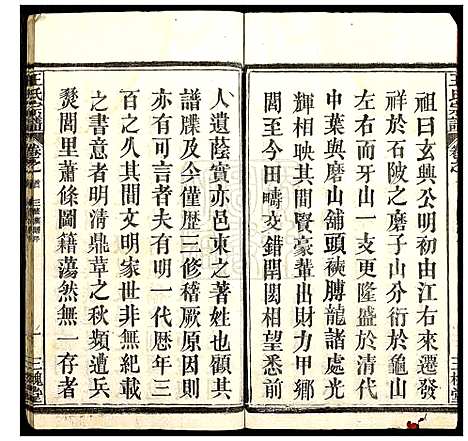 王氏宗譜
卷之一
祖曰玄興公明初由江右來遷發
祥於石陂之磨子山繼分析於龜山
左右而牙山一支更隆盛於清代
中葉與磨山舖頭襖膊龍諸處光
輝相映其間賢豪輩出財力甲鄉
邑至於今田疇交錯閈閎相望悉前
三槐堂
人遺蔭實亦邑東之著姓也顧其
譜牒及今僅歷三修稽厥原因則
亦有可言者夫有明一代歷年三
百其間文明家世非無可徵
之書意者明清鼎革之秋頻遭兵
燹閭里蕭條圖籍蕩然無一存者
王氏宗譜
卷之一
三槐堂